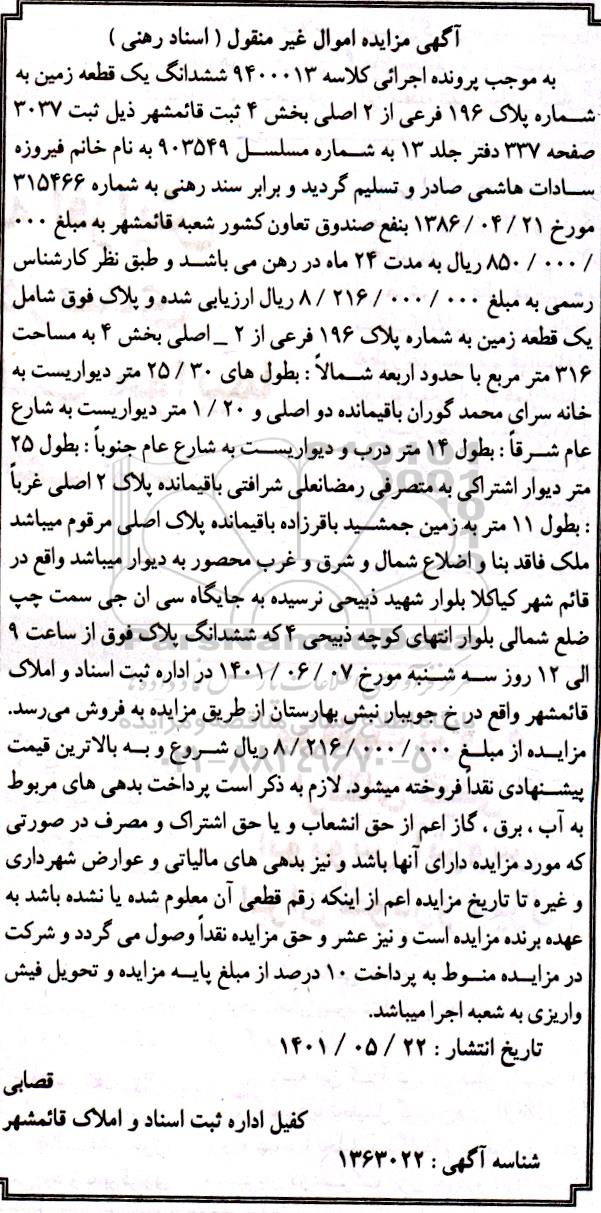 آگهی مزایده اموال غیر منقول ( اسناد رهنی )
به موجب پرونده اجرائی کلاسه ۹۴۰۰۰۱۳ ششدانگ یک قطعه زمین به
شماره پلاک ۱۹۶ فرعی از ۲ اصلی بخش ۴ ثبت قائمشهر ذیل ثبت ۳۰۳۷
صفحه ۳۳۷ دفتر جلد ۱۳ به شماره مسلسل ۹۰۳۵۴۹ به نام خانم فیروزه
سادات هاشمی صادر و تسلیم گردید و برابر سند رهنی به شماره ۳۱۵۴۶۶
مورخ ۲۱ / ۰۴ / ۱۳۸۶ بنفع صندوق تعاون کشور شعبه قائمشهر به مبلغ ۰۰۰
/ ۰۰۰ / ۸۵۰ ریال به مدت ۲۴ ماه در رهن می باشد و طبق نظر کارشناس
رسمی به مبلغ ۰۰۰ / ۰۰۰ / ۲۱۶ / ۸ ریال ارزیابی شده و پلاک فوق شامل
یک قطعه زمین به شماره پلاک ۱۹۶ فرعی از ۲ _ اصلی بخش ۴ به مساحت
۳۱۶ متر مربع با حدود اربعه شمالاً : بطول های ۳۰ / ۲۵ متر دیواریست به
خانه سرای محمد گوران باقیمانده دو اصلی و ۲۰ / ۱ متر دیواریست به شارع
عام شرقاً : بطول ۱۴ متر درب و دیواریست به شارع عام جنوباً : بطول ۲۵
متر دیوار اشتراکی به متصرفی رمضانعلی شرافتی باقیمانده پلاک ۲ اصلی غرباً
: بطول ۱۱ متر به زمین جمشید باقرزاده باقیمانده پلاک اصلی مرقوم میباشد
ملک فاقد بنا و اضلاع شمال و شرق و غرب محصور به دیوار میباشد واقع در
قائم شهر کیاکلا بلوار شهید ذبیحی نرسیده به جایگاه سی ان جی سمت چپ
ضلع شمالی بلوار انتهای کوچه ذبیحی ۴ که ششدانگ پلاک فوق از ساعت ۹
الی ۱۲ روز سه شنبه مورخ ۰۷ / ۰۶ / ۱۴۰۱ در اداره ثبت اسناد و املاک
قائمشهر واقع در خ جویبار نبش بهارستان از طریق مزایده به فروش می‌رسد.
مزایده از مبلغ ۰۰۰ / ۰۰۰ / ۲۱۶ / ۸ ریال شروع و به بالاترین قیمت
پیشنهادی نقداً فروخته میشود. لازم به ذکر است پرداخت بدهی های مربوط
به آب ، برق ، گاز اعم از حق انشعاب و یا حق اشتراک و مصرف در صورتی
که مورد مزایده دارای آنها باشد و نیز بدهی های مالیاتی و عوارض شهرداری
و غیره تا تاریخ مزایده اعم از اینکه رقم قطعی آن معلوم شده یا نشده باشد به
عهده برنده مزایده است و نیز عشر و حق مزایده نقداً وصول می گردد و شرکت
در مزایده منوط به پرداخت ۱۰ درصد از مبلغ پایه مزایده و تحویل فیش
واریزی به شعبه اجرا میباشد.
تاریخ انتشار : ۲۲ / ۰۵ / ۱۴۰۱
قصابی
کفیل اداره ثبت اسناد و املاک قائمشهر
شناسه آگهی : ۱۳۶۳۰۲۲